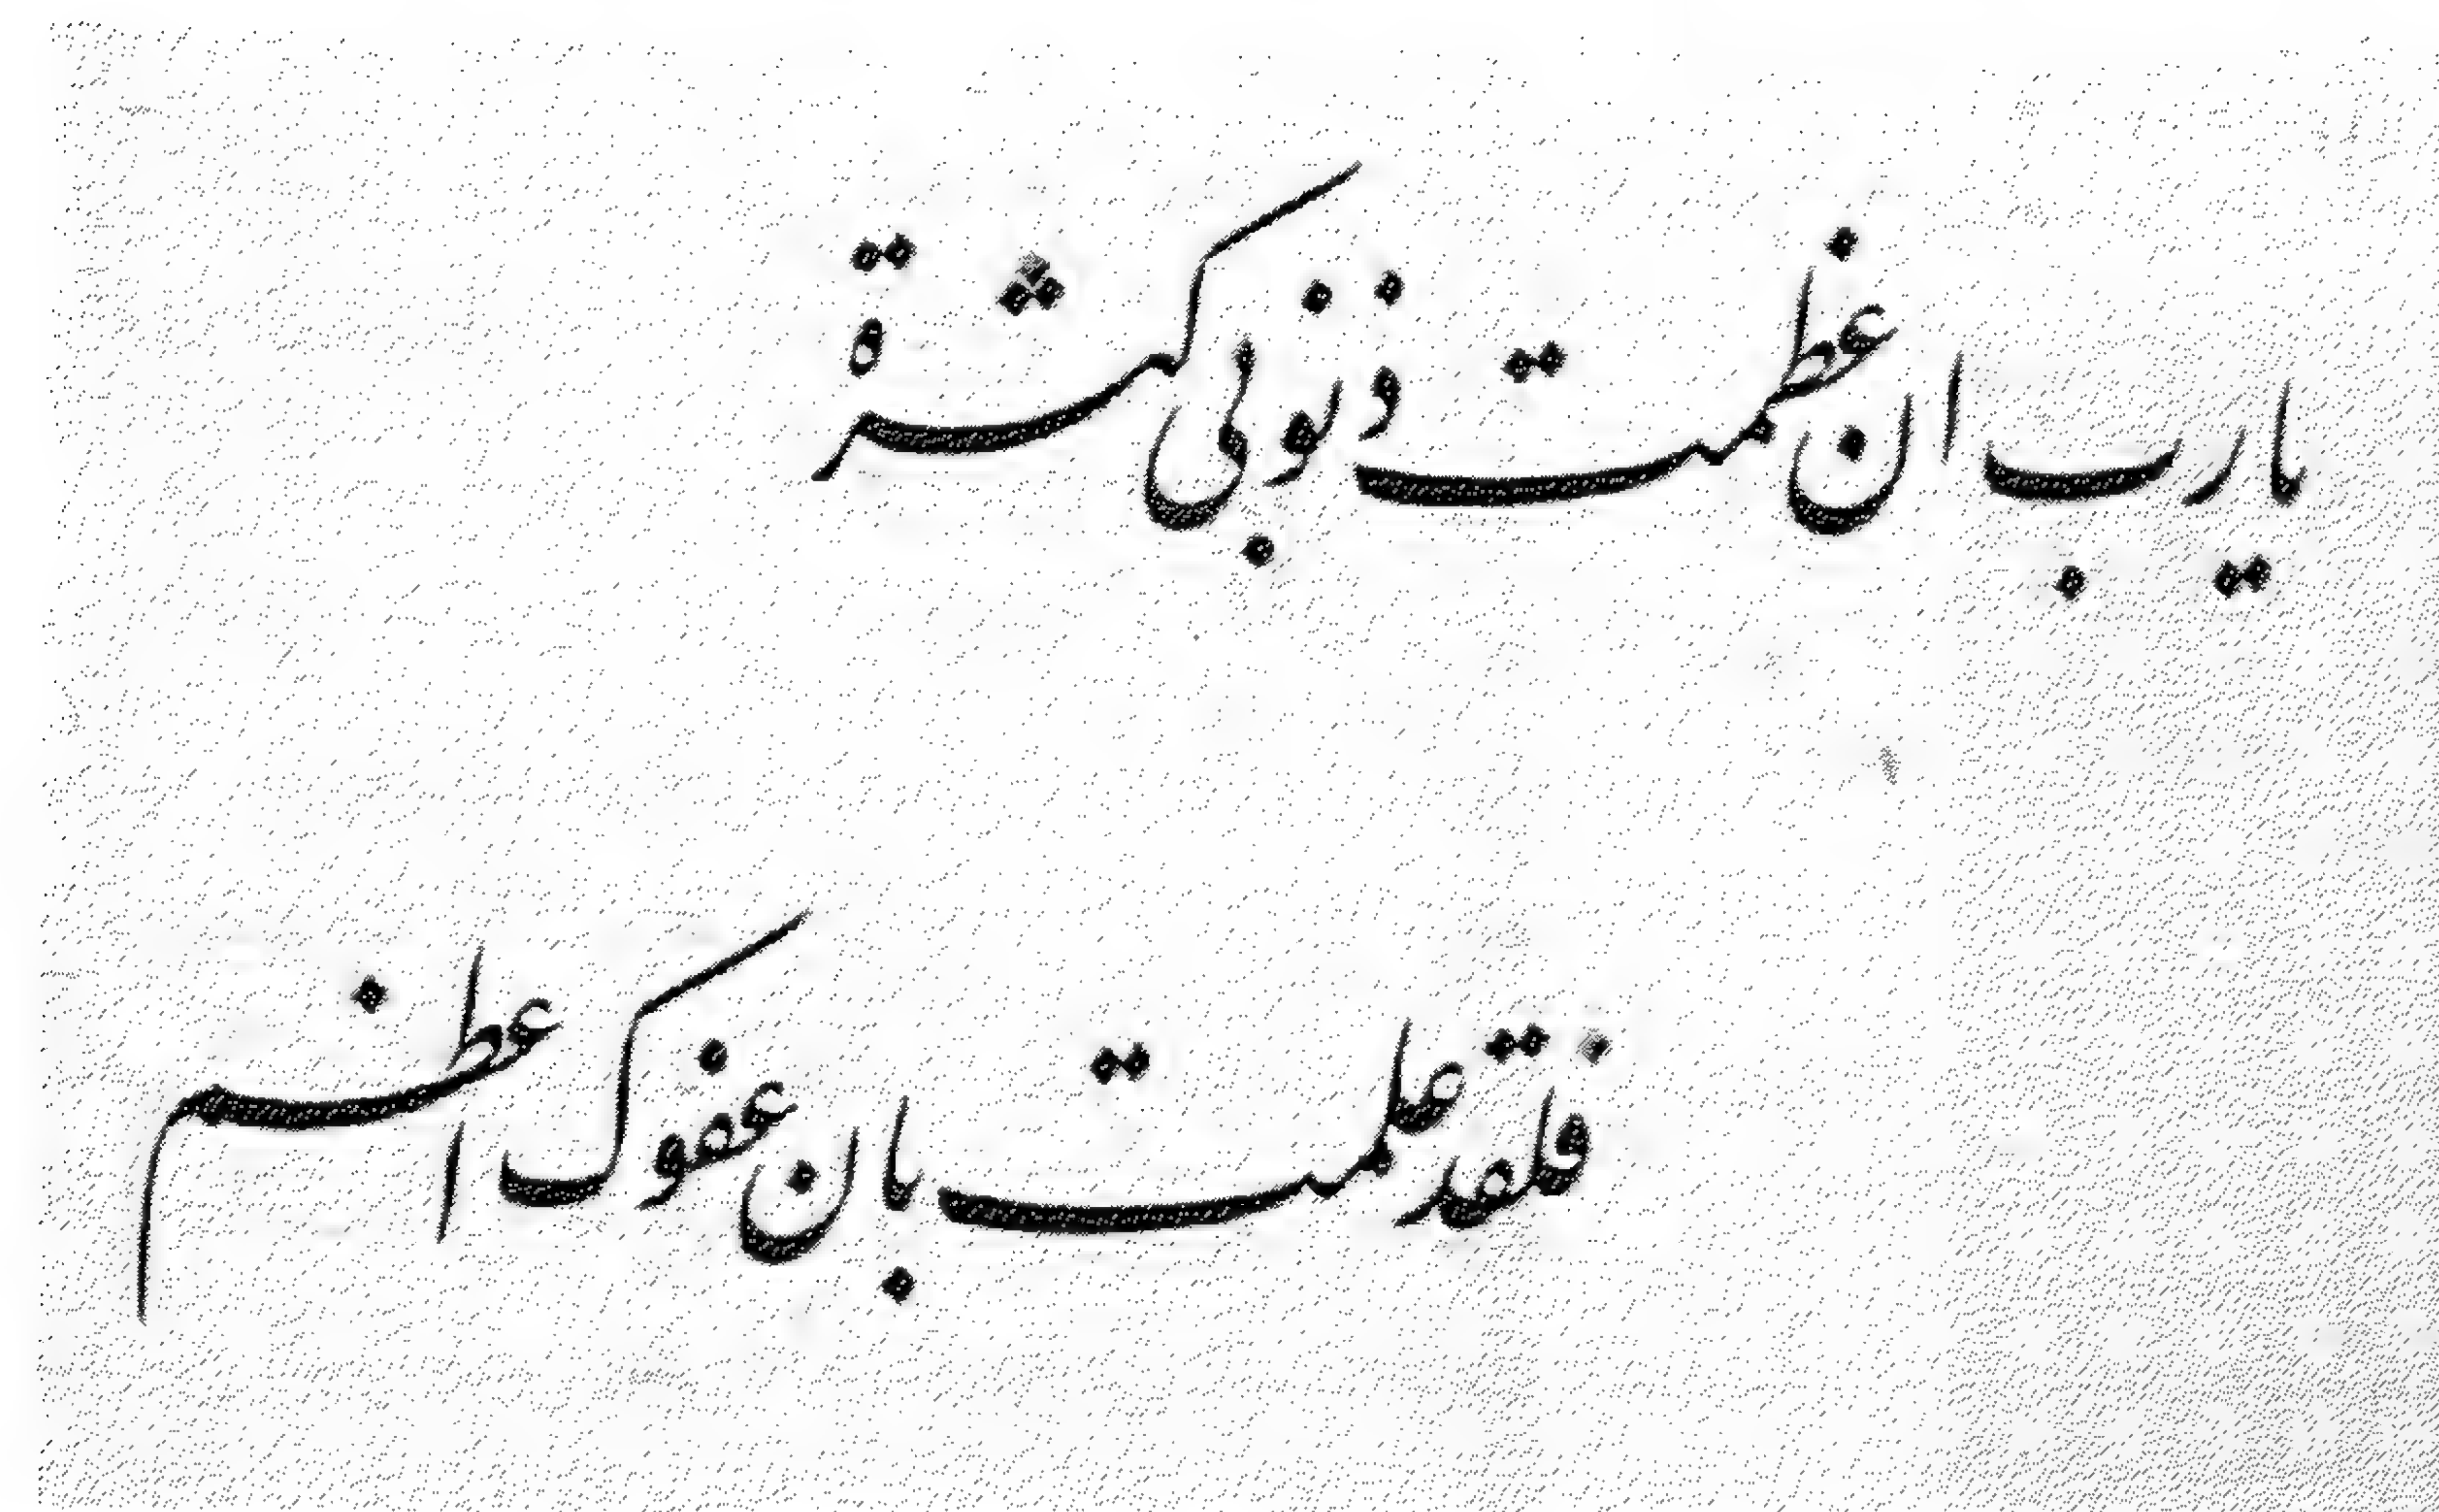 يارب ان عظمت ذنوبى كثرة
فلقد علمت بان عفوك اعظم